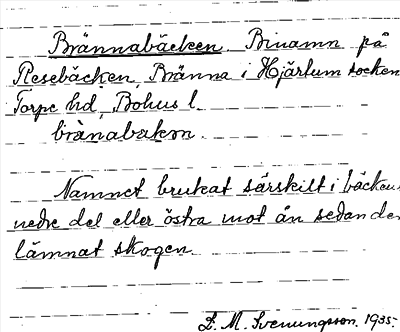 Brännabäcken. Bruamn på
Resebäcken, Bränna i Hjärtum socken
Torpe hd, Bohus l.
brànabakən
Namnet brukat särskilt i bäckens
nedre del eller östra mot ån sedan den
lämnat skogen.
L. M. Svenungsson. 1935.